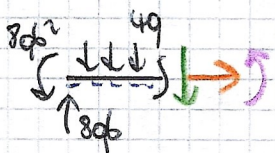 8qb²
4q
8qb